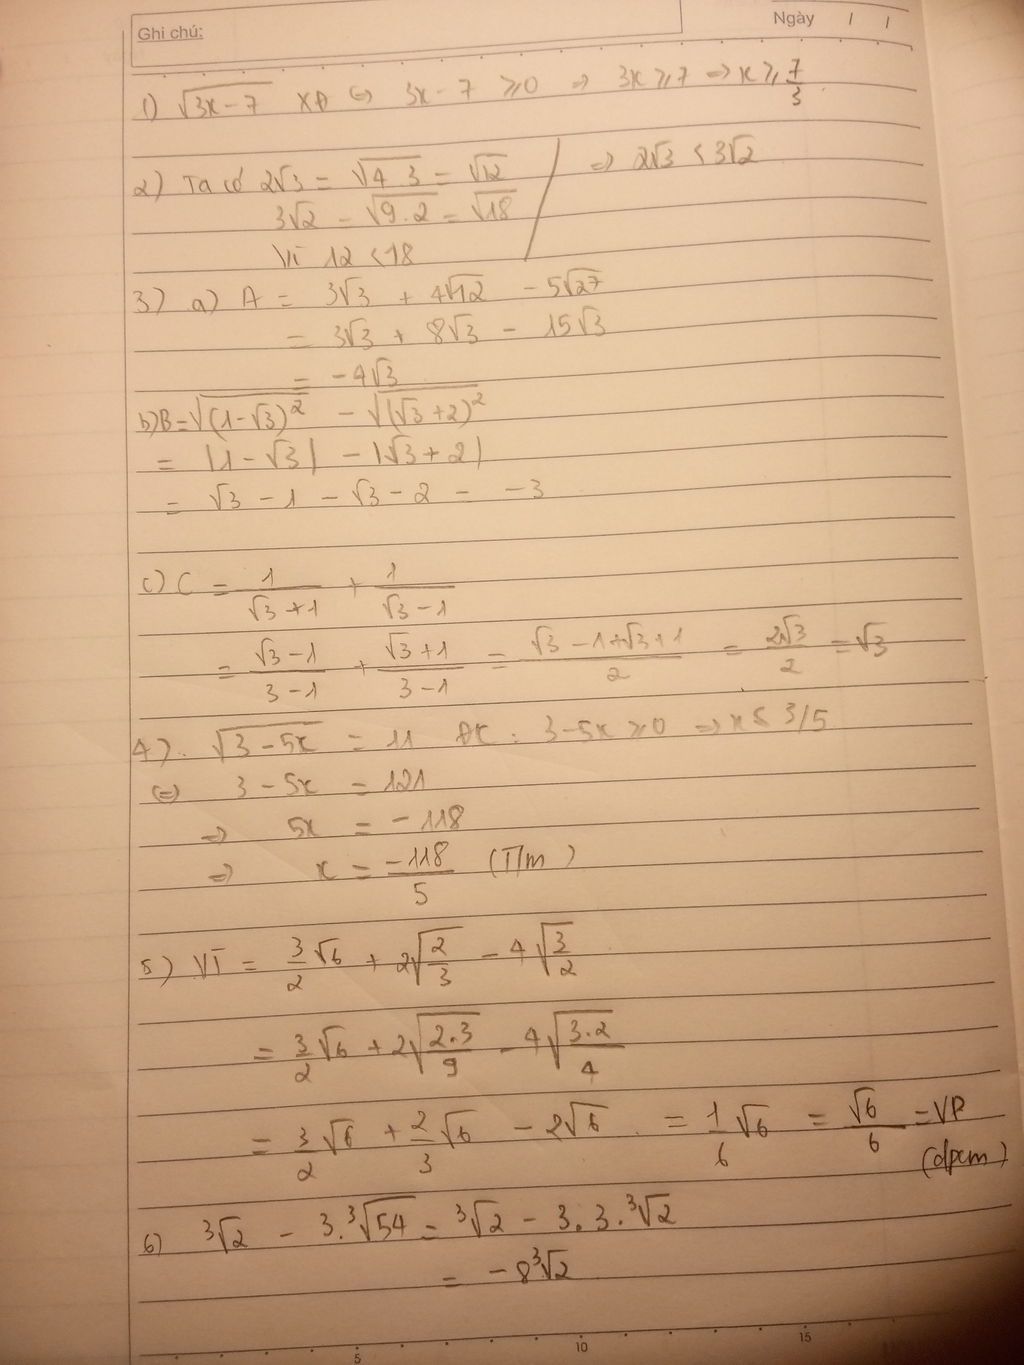 Ghi chú:
Ngày / /
1) √(3x-7) XĐ ⇔ 3x-7 ≥ 0 ⇒ 3x ≥ 7 ⇒ x ≥ 7/3
2) Ta có 2√3 = √(4.3) = √12 / ⇒ 2√3 < 3√2
3√2 = √(9.2) = √18
Vì 12 < 18
3) a) A = 3√3 + 4√12 - 5√27
= 3√3 + 8√3 - 15√3
= -4√3
b) B = √((1-√3)²) - √((√3+2)²)
= |1-√3| - |√3+2|
= √3 - 1 - √3 - 2 = -3
c) C = 1/(√3+1) + 1/(√3-1)
= (√3-1)/(3-1) + (√3+1)/(3-1) = (√3-1+√3+1)/2 = 2√3/2 = √3
4). √(3-5x) = 11 ĐK: 3-5x ≥ 0 ⇒ x ≤ 3/5
(=) 3-5x = 121
⇒ 5x = -118
⇒ x = -118/5 (T/m)
5) VT = 3/2 √6 + 2√(2/3) - 4√(3/2)
= 3/2 √6 + 2√(2.3/9) - 4√(3.2/4)
= 3/2 √6 + 2/3 √6 - 2√6 = 1/6 √6 = √6/6 = VP
(đpcm)
6) ³√2 - 3.³√54 = ³√2 - 3.3.³√2
= -8³√2
5 10 15